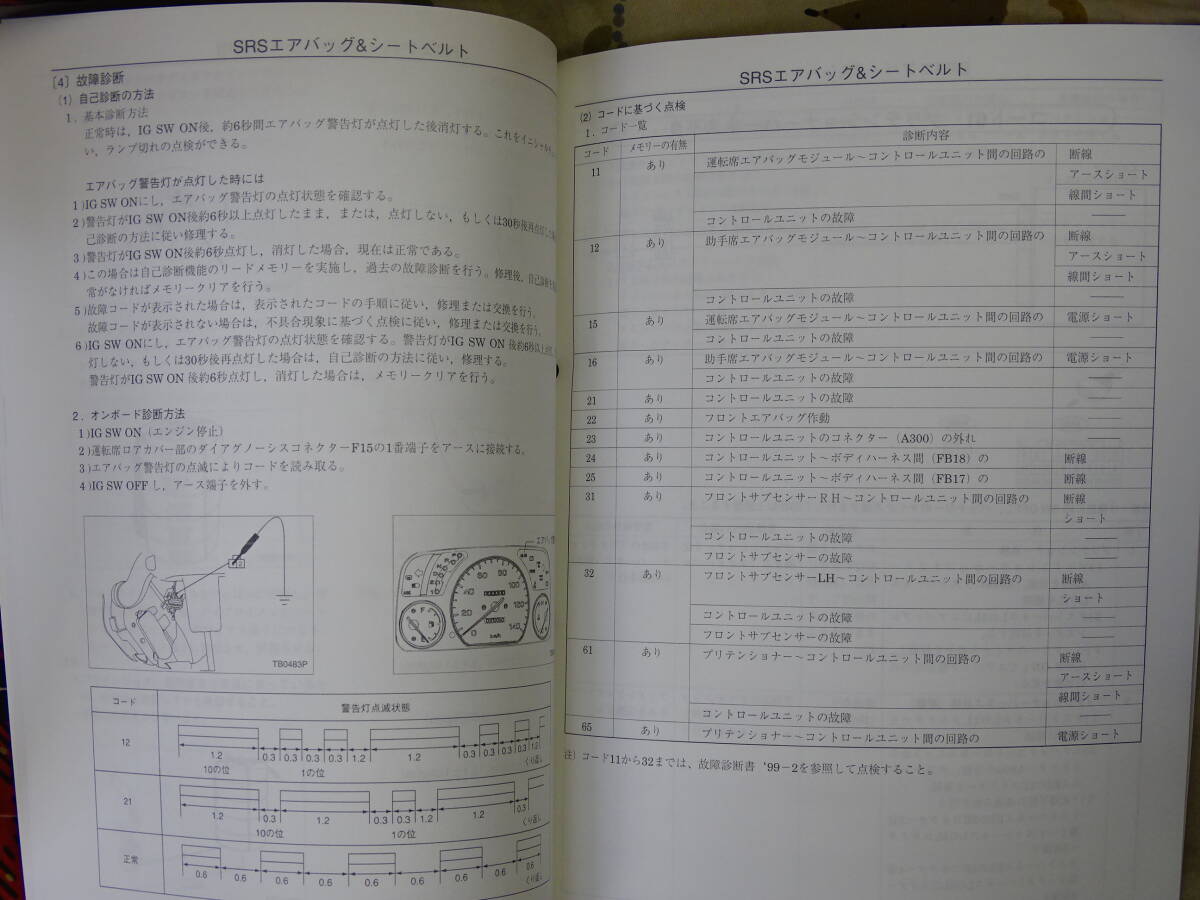 SRSエアバッグ&シートベルト
〔4〕故障診断
(1) 自己診断の方法
1．基本診断方法
正常時は，IG SW ON後，約6秒間エアバッグ警告灯が点灯した後消灯する。これをイニシャル
い，ランプ切れの点検ができる。
エアバッグ警告灯が点灯した時には
1)IG SW ONにし，エアバッグ警告灯の点灯状態を確認する。
2)警告灯がIG SW ON後約6秒以上点灯したまま，または，点灯しない，もしくは30秒後再点灯した
己診断の方法に従い修理する。
3)警告灯がIG SW ON後約6秒点灯し，消灯した場合，現在は正常である。
4)この場合は自己診断機能のリードメモリーを実施し，過去の故障診断を行う。修理後，自己診断
常がなければメモリークリアを行う。
5)故障コードが表示された場合は，表示されたコードの手順に従い，修理または交換を行う。
故障コードが表示されない場合は，不具合現象に基づく点検に従い，修理または交換を行う。
6)IG SW ONにし，エアバッグ警告灯の点灯状態を確認する。警告灯がIG SW ON 後約6秒以上
灯しない，もしくは30秒後再点灯した場合は，自己診断の方法に従い，修理する。
警告灯がIG SW ON 後約6秒点灯し，消灯した場合は，メモリークリアを行う。
2．オンボード診断方法
1)IG SW ON（エンジン停止）
2)運転席ロアカバー部のダイアグノーシスコネクターF15の1番端子をアースに接続する。
3)エアバッグ警告灯の点滅によりコードを読み取る。
4)IG SW OFFし，アース端子を外す。
TB0483P
エアバッ
20 40 60 80 100 120 140
km/h
コード 警告灯点滅状態
12
1.2 0.3 0.3 0.3 0.3 1.2 1.2 0.3 0.3 0.3 0.3 1.2
10の位 1の位 くり返し
21
1.2 0.3 1.2 0.3 0.3 1.2 1.2 0.3
10の位 1の位 くり返し
正常
0.6 0.6 0.6 0.6 0.6 0.6 0.6 0.6 0.6
くり返し
SRSエアバッグ&シートベルト
(2) コードに基づく点検
1．コード一覧
コード メモリーの有無 診断内容
11 あり 運転席エアバッグモジュール～コントロールユニット間の回路の 断線
アースショート
線間ショート
コントロールユニットの故障 ――
12 あり 助手席エアバッグモジュール～コントロールユニット間の回路の 断線
アースショート
線間ショート
コントロールユニットの故障 ――
15 あり 運転席エアバッグモジュール～コントロールユニット間の回路の 電源ショート
コントロールユニットの故障 ――
16 あり 助手席エアバッグモジュール～コントロールユニット間の回路の 電源ショート
コントロールユニットの故障 ――
21 あり コントロールユニットの故障 ――
22 あり フロントエアバッグ作動 ――
23 あり コントロールユニットのコネクター（A300）の外れ ――
24 あり コントロールユニット～ボディハーネス間（FB18）の 断線
25 あり コントロールユニット～ボディハーネス間（FB17）の 断線
31 あり フロントサブセンサーRH～コントロールユニット間の回路の 断線
ショート
コントロールユニットの故障 ――
フロントサブセンサーの故障 ――
32 あり フロントサブセンサーLH～コントロールユニット間の回路の 断線
ショート
コントロールユニットの故障 ――
フロントサブセンサーの故障 ――
61 あり プリテンショナー～コントロールユニット間の回路の 断線
アースショート
線間ショート
コントロールユニットの故障 ――
65 あり プリテンショナー～コントロールユニット間の回路の 電源ショート
注）コード11から32までは、故障診断書 '99－2を参照して点検すること。